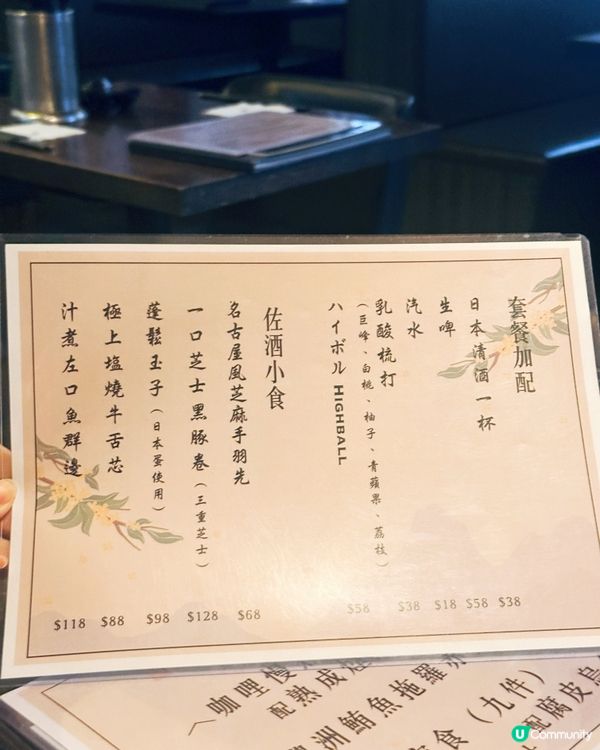 套餐加配
日本清酒一杯 $38
生啤 $58
汽水 $18
乳酸梳打 $38
（巨峰、白桃、柚子、青蘋果、荔枝）
ハイボル HIGHBALL $58
佐酒小食
名古屋風芝麻手羽先 $68
一口芝士黑豚卷（三重芝士） $128
蓬鬆玉子（日本蛋使用） $98
極上塩燒牛舌芯 $88
汁煮左口魚群邊 $118
咖哩慢
配熟成
洲鮪魚拖羅
食（九件）
配腐皮烏
U Community